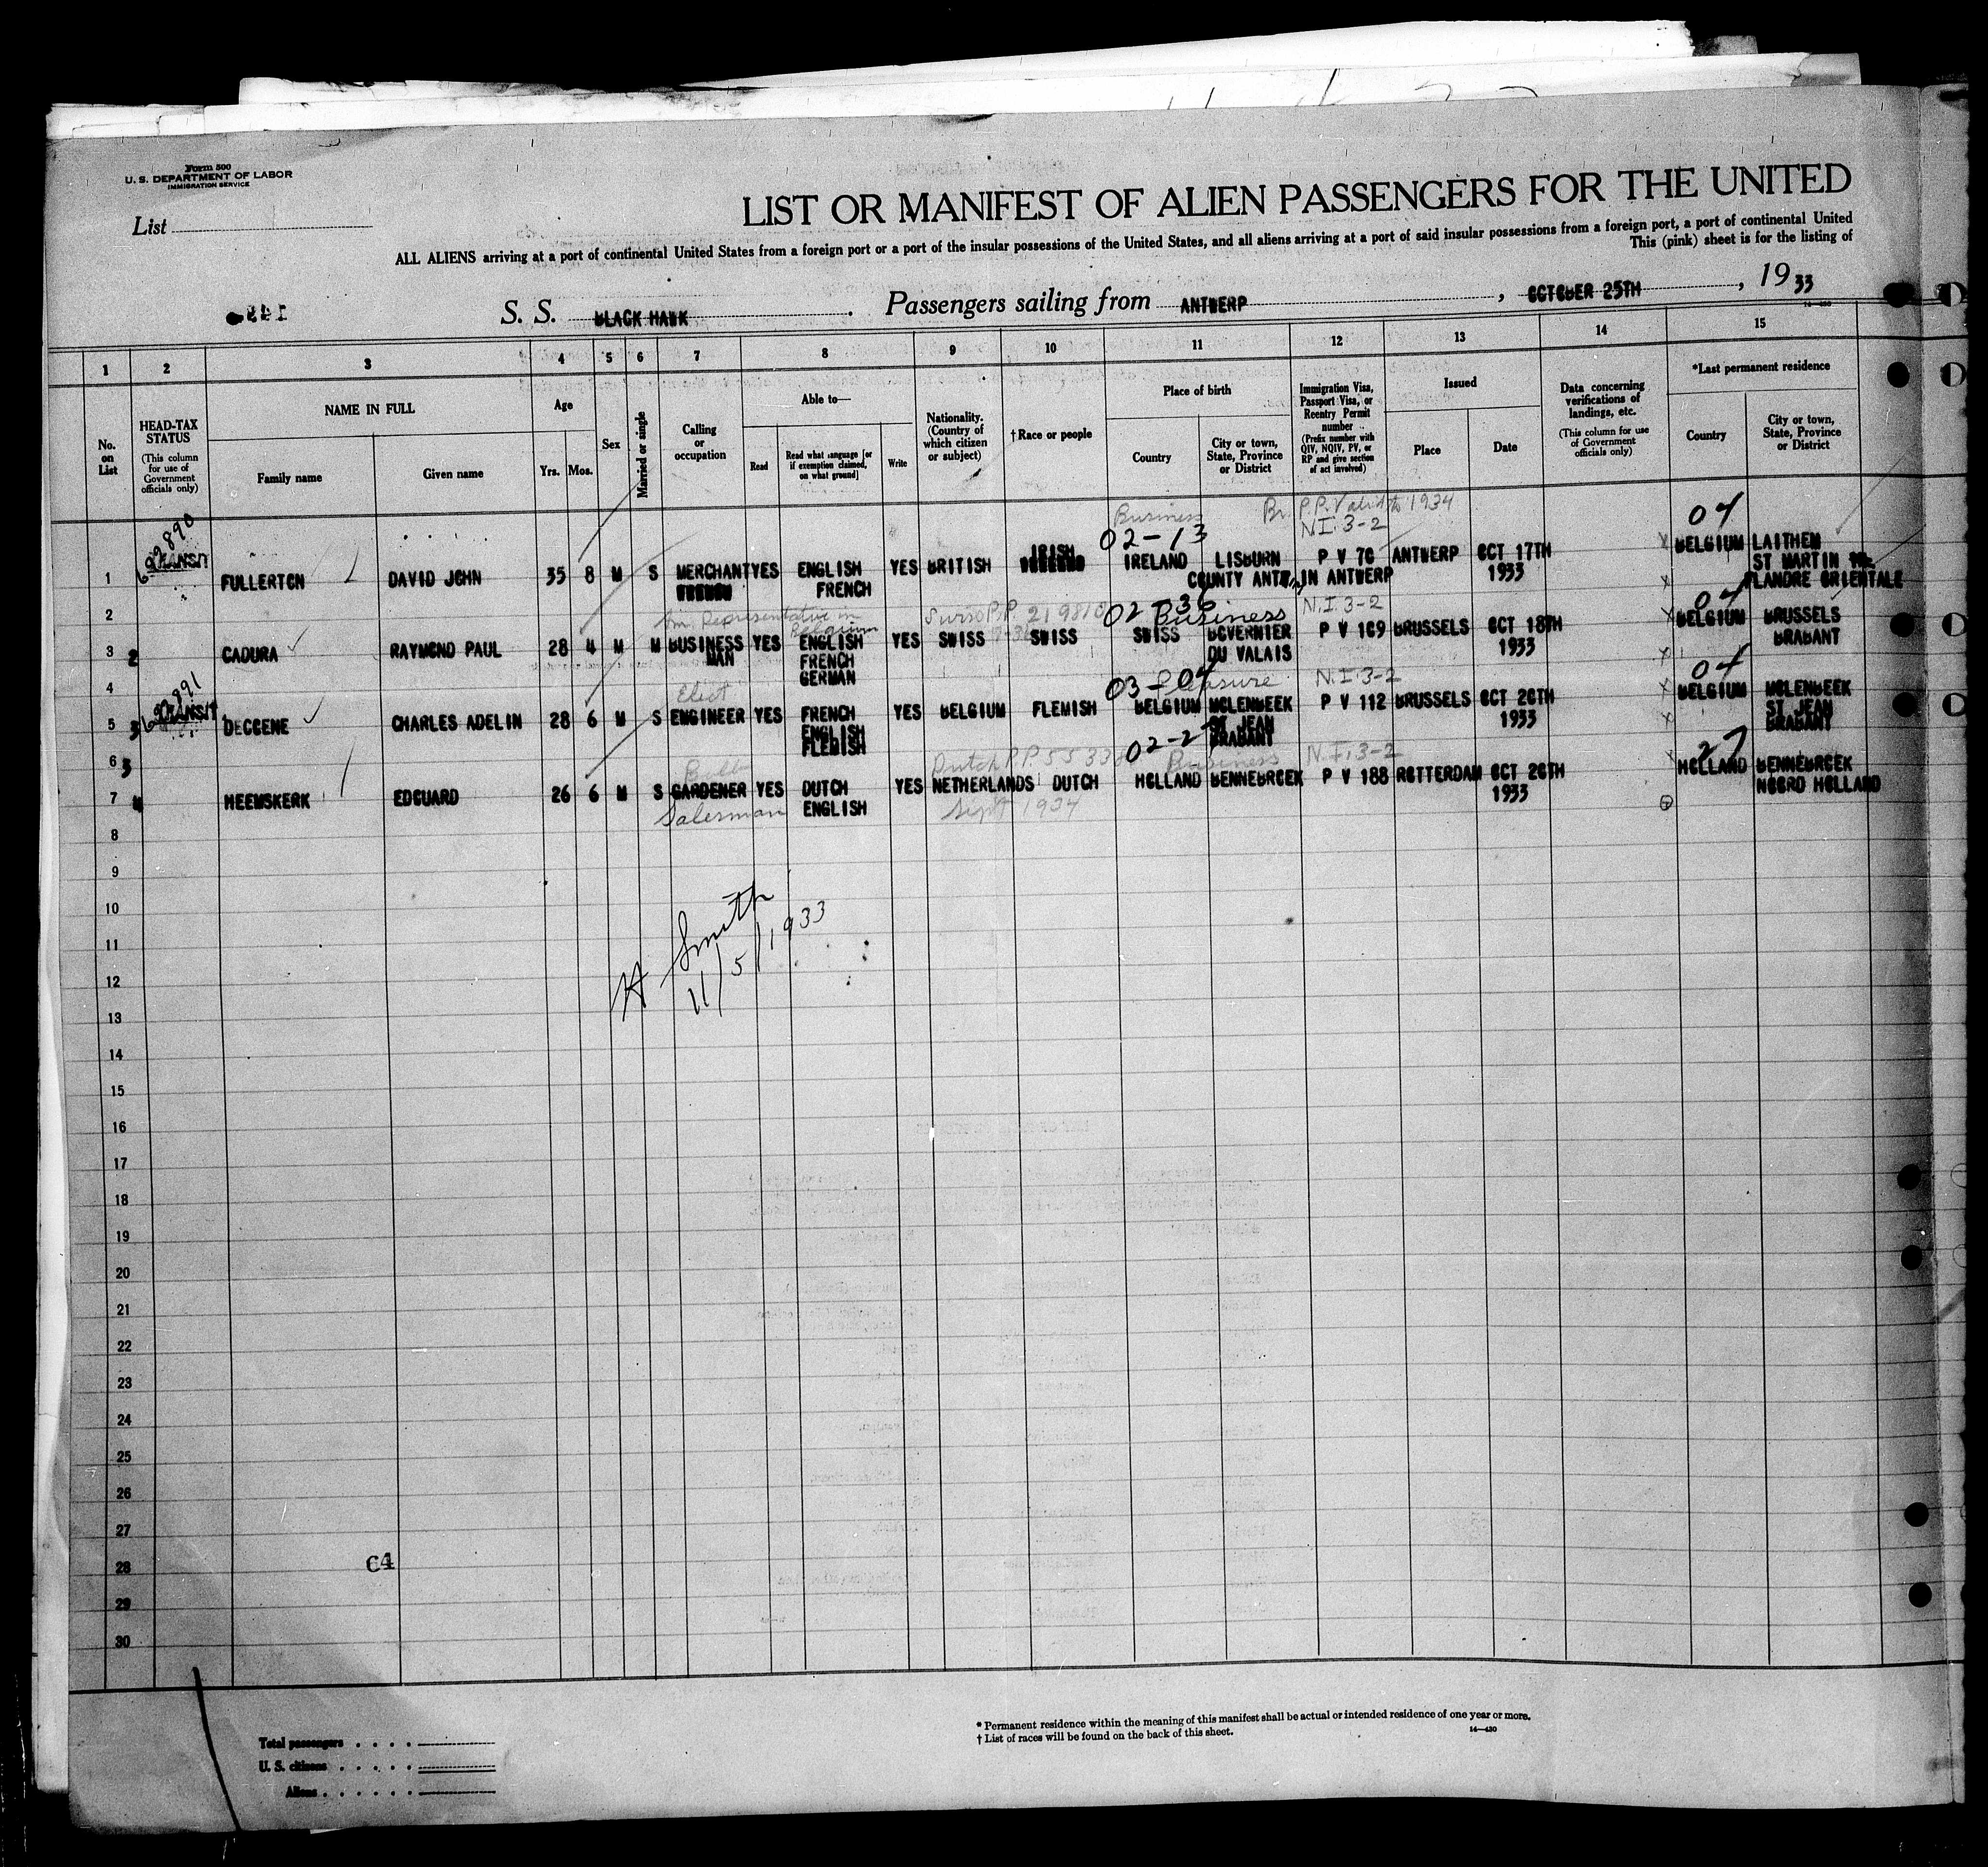 Form 500
U. S. DEPARTMENT OF LABOR
IMMIGRATION SERVICE
List
LIST OR MANIFEST OF ALIEN PASSENGERS FOR THE UNITED
ALL ALIENS arriving at a port of continental United States from a foreign port or a port of the insular possessions of the United States, and all aliens arriving at a port of said insular possessions from a foreign port, a port of continental United
This (pink) sheet is for the listing of
S. S. BLACK HAWK. Passengers sailing from ANTWERP, OCTOBER 25TH, 1933
1 2 3 4 5 6 7 8 9 10 11 12 13 14 15
No. on List
HEAD-TAX STATUS
(This column for use of Government officials only)
NAME IN FULL
Family name
Given name
Age
Yrs. Mos.
Sex
Married or single
Calling or occupation
Able to—
Read
Read what language [or if exemption claimed, on what ground]
Write
Nationality. (Country of which citizen or subject)
†Race or people
Place of birth
Country
City or town, State, Province or District
Immigration Visa, Passport Visa, or Reentry Permit number
(Prefix number with QIV, NQIV, PV, or RP and give section of act involved)
Issued
Place
Date
Data concerning verifications of landings, etc.
(This column for use of Government officials only)
*Last permanent residence
Country
City or town, State, Province or District
Business Br. P.P. Valid to 1934
62890 02-13 N.I. 3-2 04
1 TRANSIT FULLERTON DAVID JOHN 35 8 M S MERCHANT YES ENGLISH YES BRITISH IRISH IRELAND LISBURN P V 70 ANTWERP OCT 17TH BELGIUM LAITHEM
FRENCH COUNTY ANTR IN ANTWERP 1933 ST MARTIN
FLANDRE ORIENTALE
2 Am. Representative in Belgium Swiss P.P. 219810 02-36 Business N.I. 3-2 04
3 2 CADURA RAYMOND PAUL 28 4 M M BUSINESS YES ENGLISH YES SWISS SWISS SWISS BOVERNIER P V 169 BRUSSELS OCT 18TH BELGIUM BRUSSELS
MAN FRENCH DU VALAIS 1933 BRABANT
GERMAN
4 62891 Elect 03-04 Pleasure N.I. 3-2 04
5 3 TRANSIT DECCENE CHARLES ADELIN 28 6 M S ENGINEER YES FRENCH YES BELGIUM FLEMISH BELGIUM MOLENBEEK P V 112 BRUSSELS OCT 20TH BELGIUM MOLENBEEK
ENGLISH ST JEAN 1933 ST JEAN
FLEMISH BRABANT BRABANT
6 3 Bulb Dutch P.P. 02-27 Business N.I. 3-2 27
7 4 HEEMSKERK EDOUARD 26 6 M S GARDENER YES DUTCH YES NETHERLANDS DUTCH HOLLAND BENNEBROEK P V 188 ROTTERDAM OCT 20TH HOLLAND BENNEBROEK
Salesman ENGLISH Sept 1934 1933 NOORD HOLLAND
8
9
10
11
12
13
H Smith
11/5/1933
14
15
16
17
18
19
20
21
22
23
24
25
26
27
28
64
29
30
Total passengers
U. S. citizens
Aliens
* Permanent residence within the meaning of this manifest shall be actual or intended residence of one year or more.
† List of races will be found on the back of this sheet.
14—430